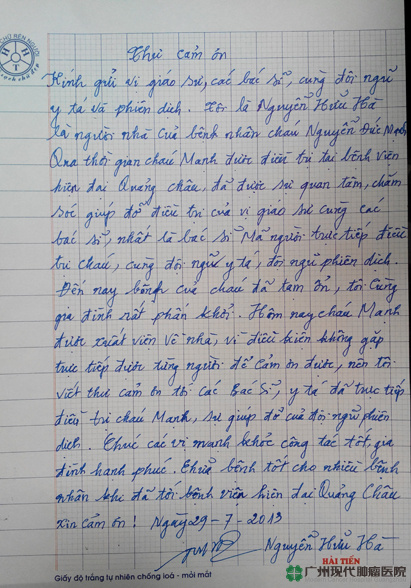 Thư cảm ơn
Kính gửi vị giáo sư, các bác sĩ, cùng đội ngũ
y tá và phiên dịch. Tôi là Nguyễn Hữu Hà
là người nhà của bệnh nhân cháu Nguyễn Đức Mạnh
Qua thời gian cháu Mạnh được điều trị tại bệnh viện
hiện đại Quảng châu, đã được sự quan tâm, chăm
sóc giúp đỡ điều trị của vị giáo sư cùng các
bác sĩ, nhất là bác sĩ Mã người trực tiếp điều
trị cháu, cùng đội ngũ y tá, đội ngũ phiên dịch.
Đến nay bệnh của cháu đã tạm ổn, tôi cùng
gia đình rất phấn khởi. Hôm nay cháu Mạnh
được xuất viện về nhà, vì điều kiện không gặp
trực tiếp được từng người để cảm ơn được, nên tôi
viết thư cảm ơn tới các Bác Sĩ, y tá đã trực tiếp
điều trị cháu Mạnh, sự giúp đỡ của đội ngũ phiên
dịch. Chúc các vị mạnh khỏe công tác tốt gia
đình hạnh phúc. Chữa bệnh tốt cho nhiều bệnh
nhân khi đã tới bệnh viện hiện đại Quảng Châu
Xin cảm ơn! Ngày 29-7-2013
Nguyễn Hữu Hà
HẢI TIẾN
广州现代肿瘤医院
Giấy độ trắng tự nhiên chống loá - mỏi mắt